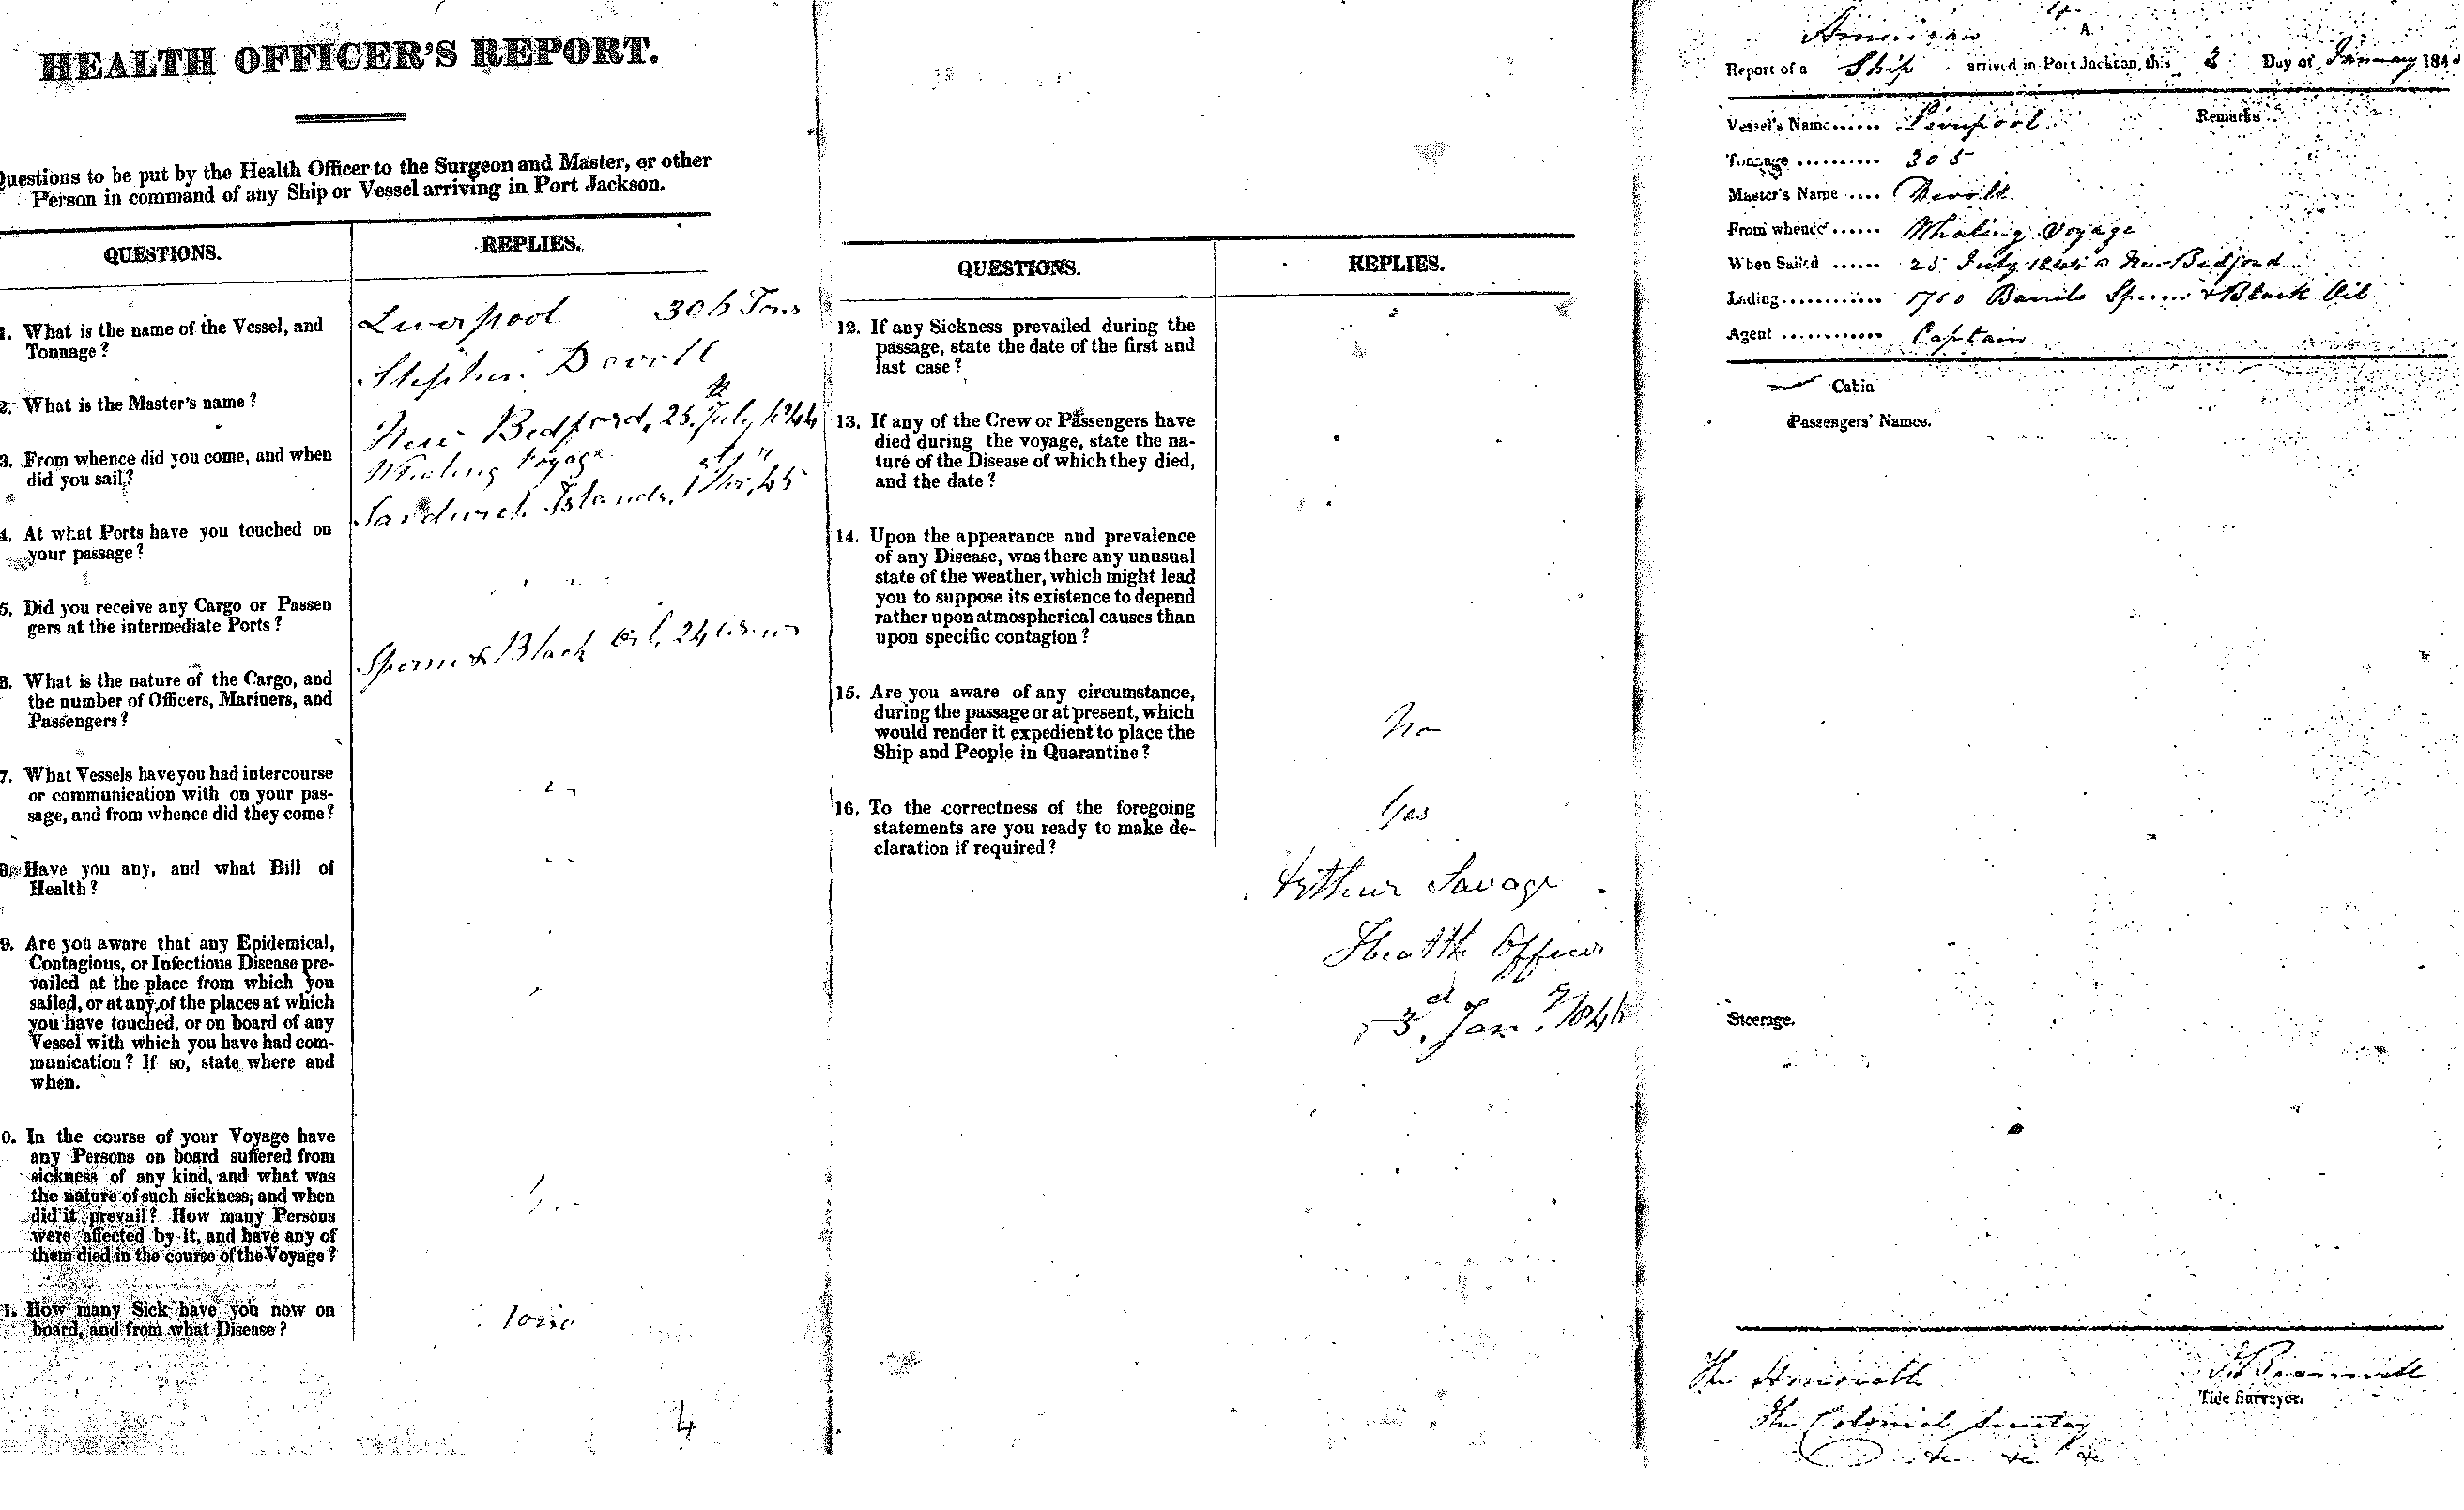 HEALTH OFFICER'S REPORT.
Questions to be put by the Health Officer to the Surgeon and Master, or other
Person in command of any Ship or Vessel arriving in Port Jackson.
QUESTIONS.
REPLIES.
1. What is the name of the Vessel, and
Tonnage?
Liverpool 306 Tons
2. What is the Master's name?
Stephen Devoll
3. From whence did you come, and when
did you sail?
New Bedford, 25th July 1844
Whaling Voyage
4. At what Ports have you touched on
your passage?
Sandwich Islands, 45
5. Did you receive any Cargo or Passen
gers at the intermediate Ports?
6. What is the nature of the Cargo, and
the number of Officers, Mariners, and
Passengers?
Sperm & Black Oil, 24
7. What Vessels have you had intercourse
or communication with on your pas-
sage, and from whence did they come?
8. Have you any, and what Bill of
Health?
9. Are you aware that any Epidemical,
Contagious, or Infectious Disease pre-
vailed at the place from which you
sailed, or at any of the places at which
you have touched, or on board of any
Vessel with which you have had com-
munication? If so, state where and
when.
0. In the course of your Voyage have
any Persons on board suffered from
sickness of any kind, and what was
the nature of such sickness; and when
did it prevail? How many Persons
were affected by it, and have any of
them died in the course of the Voyage?
1. How many Sick have you now on
board, and from what Disease?
4
QUESTIONS.
REPLIES.
12. If any Sickness prevailed during the
passage, state the date of the first and
last case?
13. If any of the Crew or Passengers have
died during the voyage, state the na-
ture of the Disease of which they died,
and the date?
14. Upon the appearance and prevalence
of any Disease, was there any unusual
state of the weather, which might lead
you to suppose its existence to depend
rather upon atmospherical causes than
upon specific contagion?
15. Are you aware of any circumstance,
during the passage or at present, which
would render it expedient to place the
Ship and People in Quarantine?
No
16. To the correctness of the foregoing
statements are you ready to make de-
claration if required?
Yes
Arthur Savage
Health Officer
3d Jany. 1846
A
American
Report of a Ship arrived in Port Jackson, this 3 Day of January 184
Vessel's Name...... Liverpool
Remarks
Tonnage .......... 305
Master's Name .... Devoll
From whence ...... Whaling Voyage
When Sailed ...... 25 July 1844 New Bedford
Lading............ 1750 Barrels Sperm & Black Oil
Agent ............ Captain
Cabin
Passengers' Names.
Steerage.
The Honorable
The Colonial Secretary
&c &c &c
Tide Surveyor.